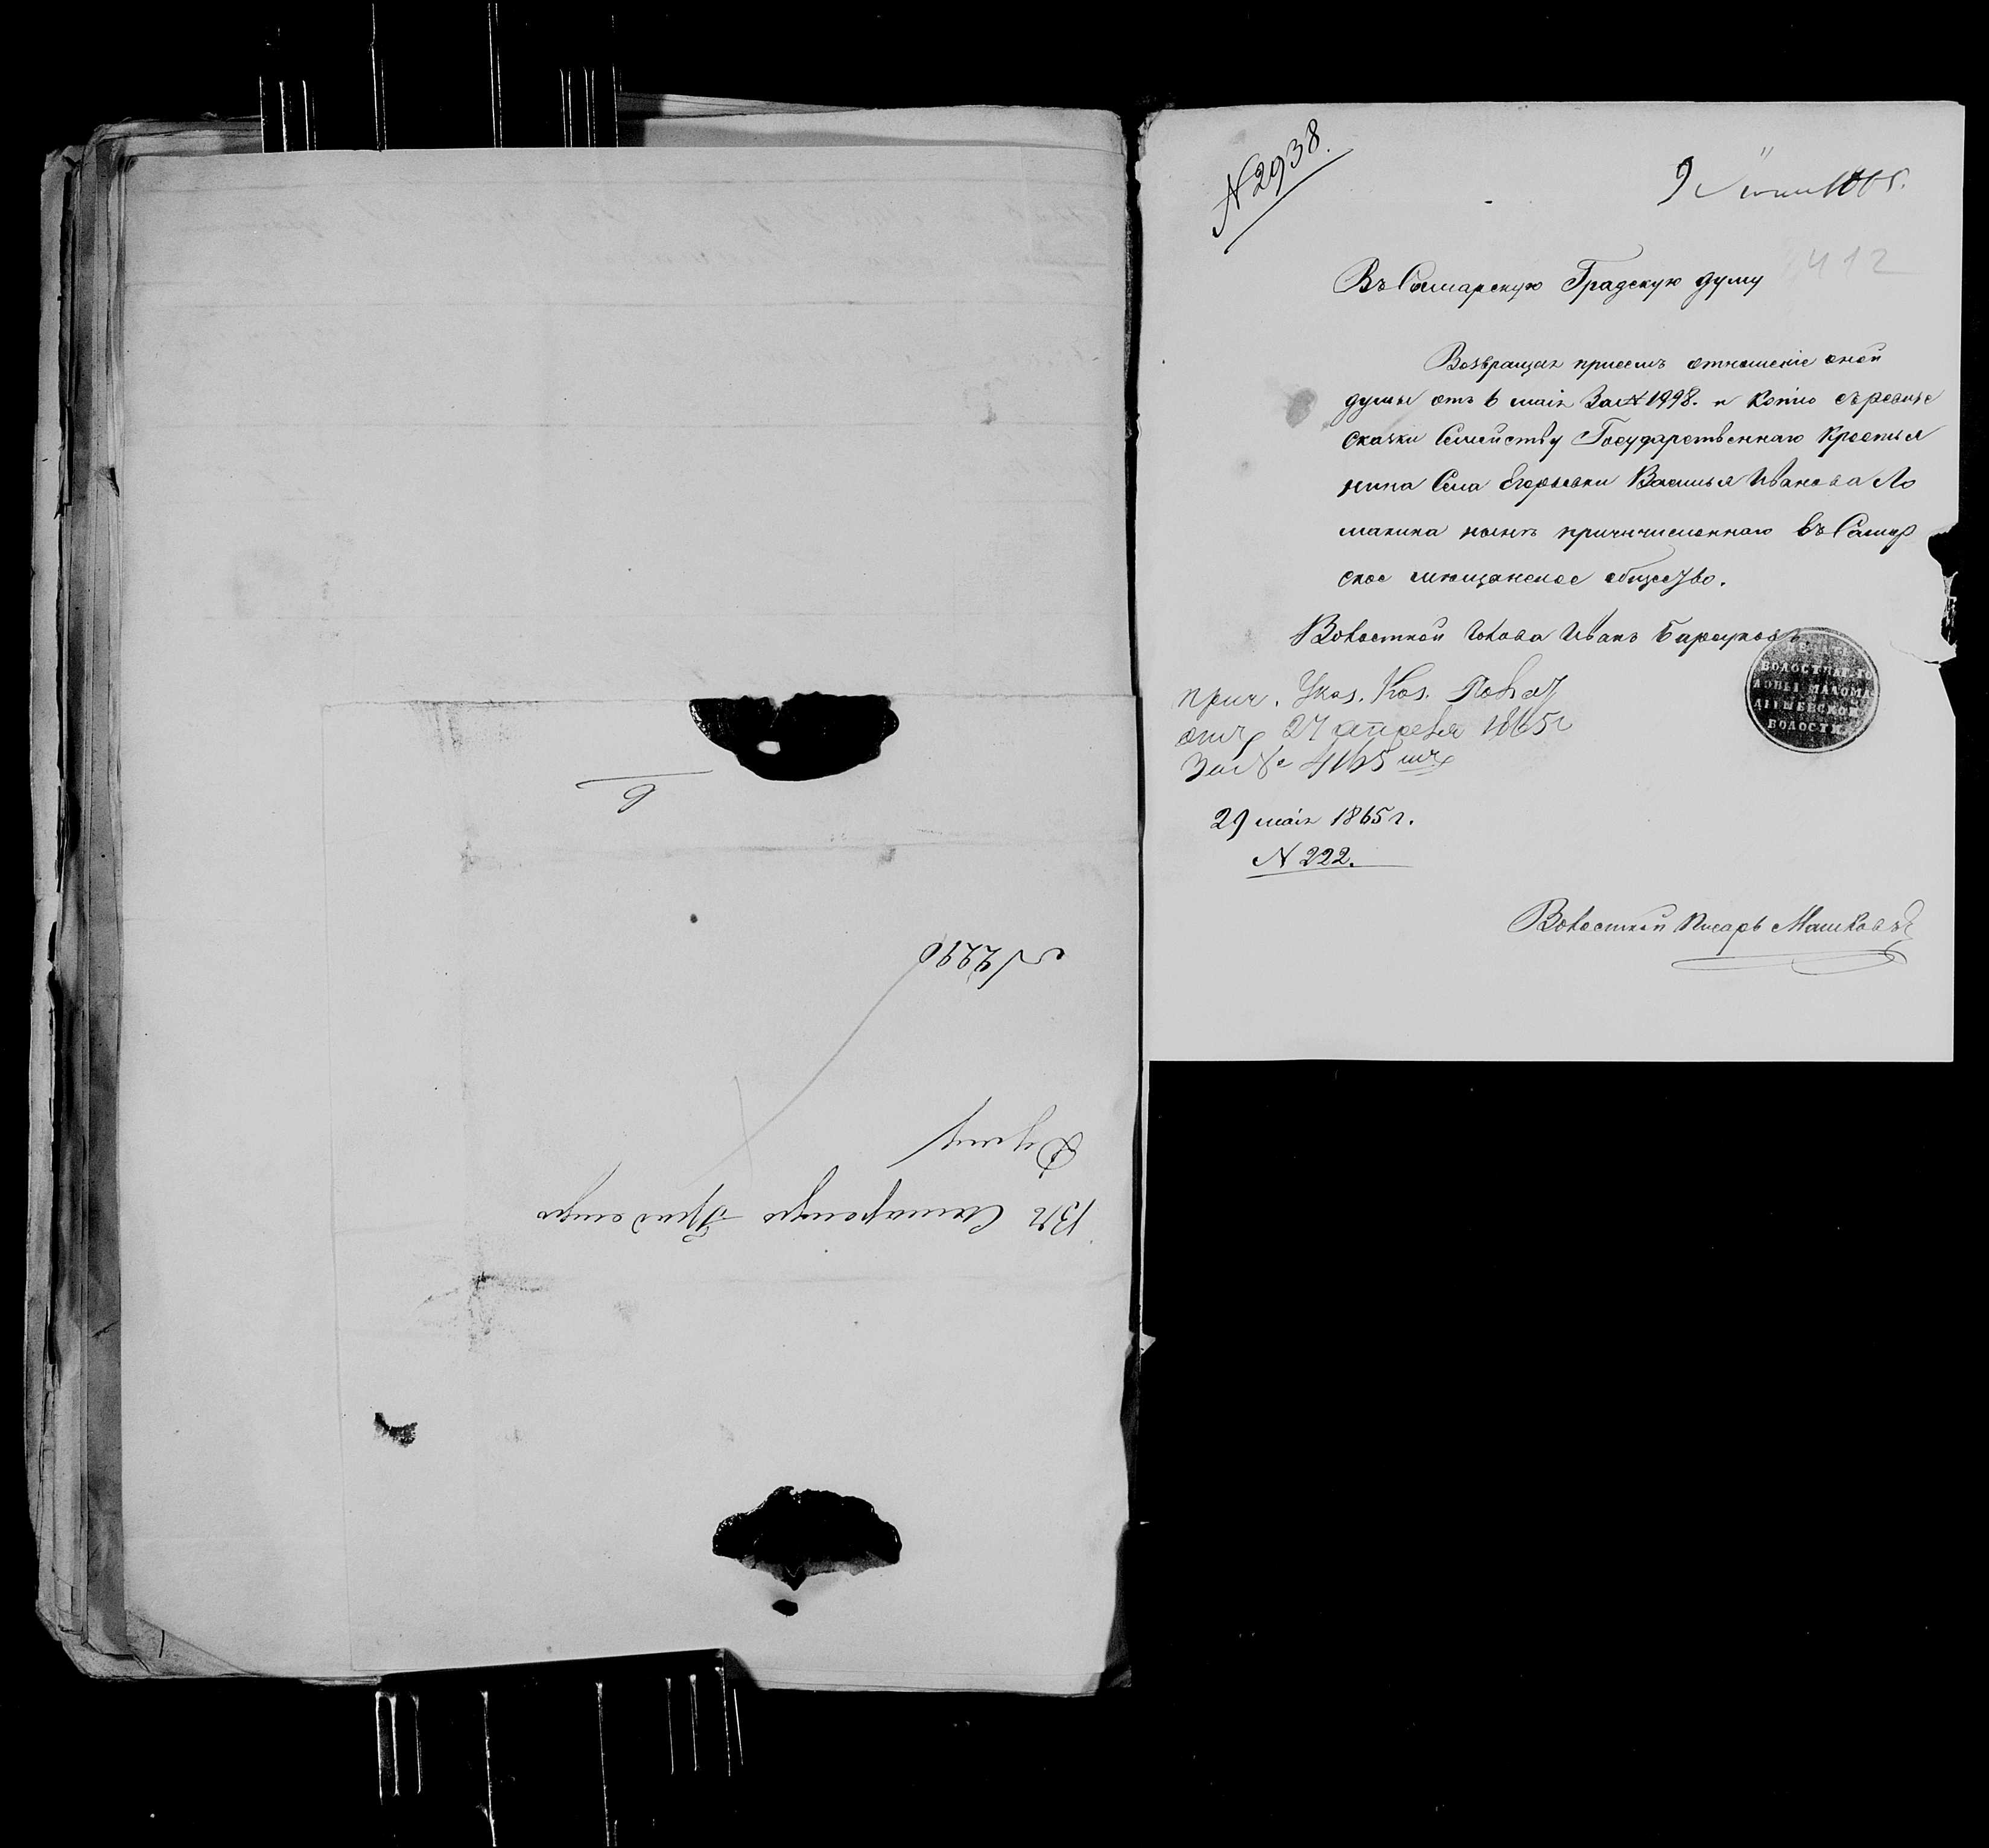 N 2938.
9 Іюня 1865.
412
Въ Самарскую Градскую думу
Возвращая присемъ отношеніе оной
думы отъ 6 маія За N 1998. и Копію съ ревис
сказки Семейству Государственнаго Крестья
нина Села Егорьевки Василья Иванова Ло
макина нынѣ причисленнаго въ Самар
ское мѣщанское общество.
Волостной Голова Иванъ
прич. Указ. Каз. Палат
отъ 27 апреля 1865 г
За № 4165
29 маія 1865 г.
N 222.
Волостной Писарь Машковъ
ВОЛОСТНАГО
ГОЛОВЫ МАЛОМА
ЛЫШЕВСКОЙ
ВОЛОСТИ
Въ Самарскую Градскую
Думу
N 222